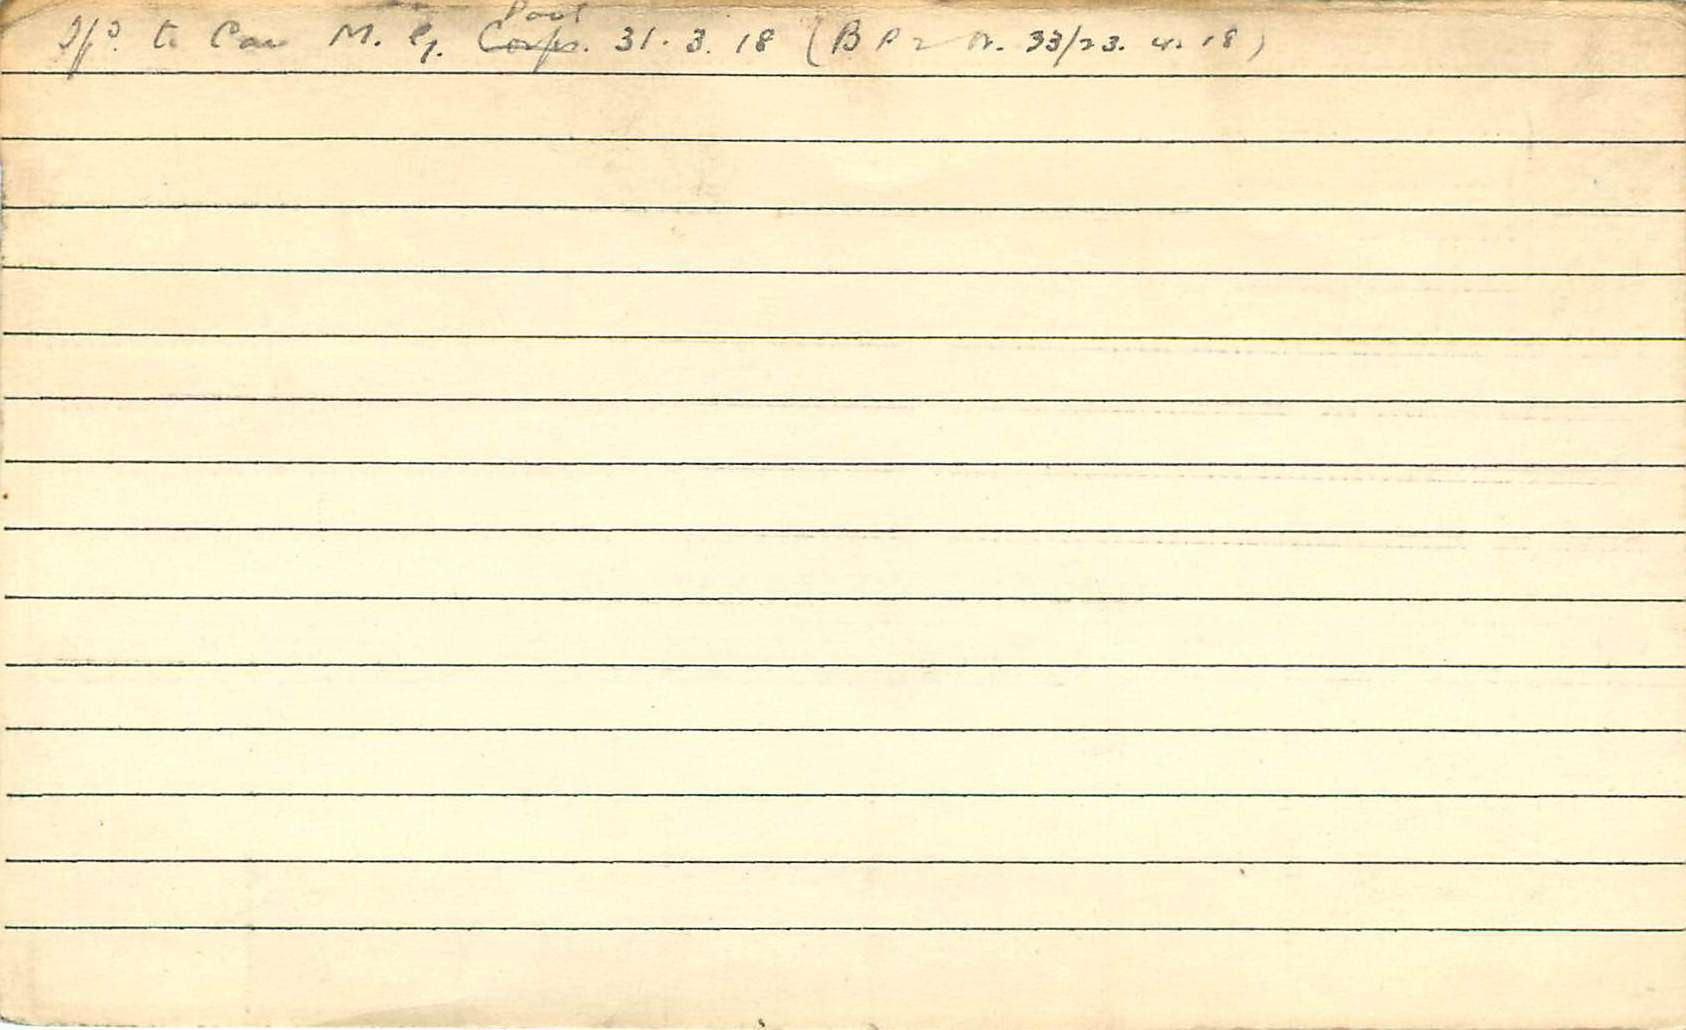 Pool
Tfd. to Can M. G. Corps. 31. 3. 18 (B P 2 33/23. 4. 18)